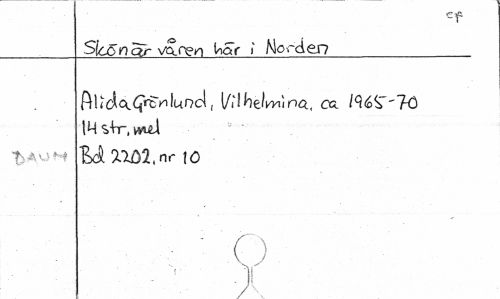 EF
Skön är våren här i Norden
Alida Grönlund, Vilhelmina, ca 1965-70
14 str, mel
DAUM Bd 2202, nr 10